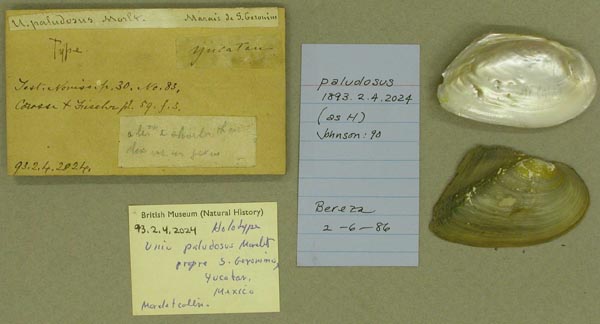 U. paludosus Morlt. Marais de S. Geronimo
Type
Yucatan
Test. Noviss. p. 30. No. 83,
Crosse & Fischer pl. 59. f. 5.
93.2.4.2024.
paludosus
1893.2.4.2024
(as H)
Johnson: 90
Bereza
2-6-86
British Museum (Natural History)
93.2.4.2024 Holotype
Unio paludosus Morelet
prope S. Geronimo,
Yucatan,
Mexico
Morelet colln.